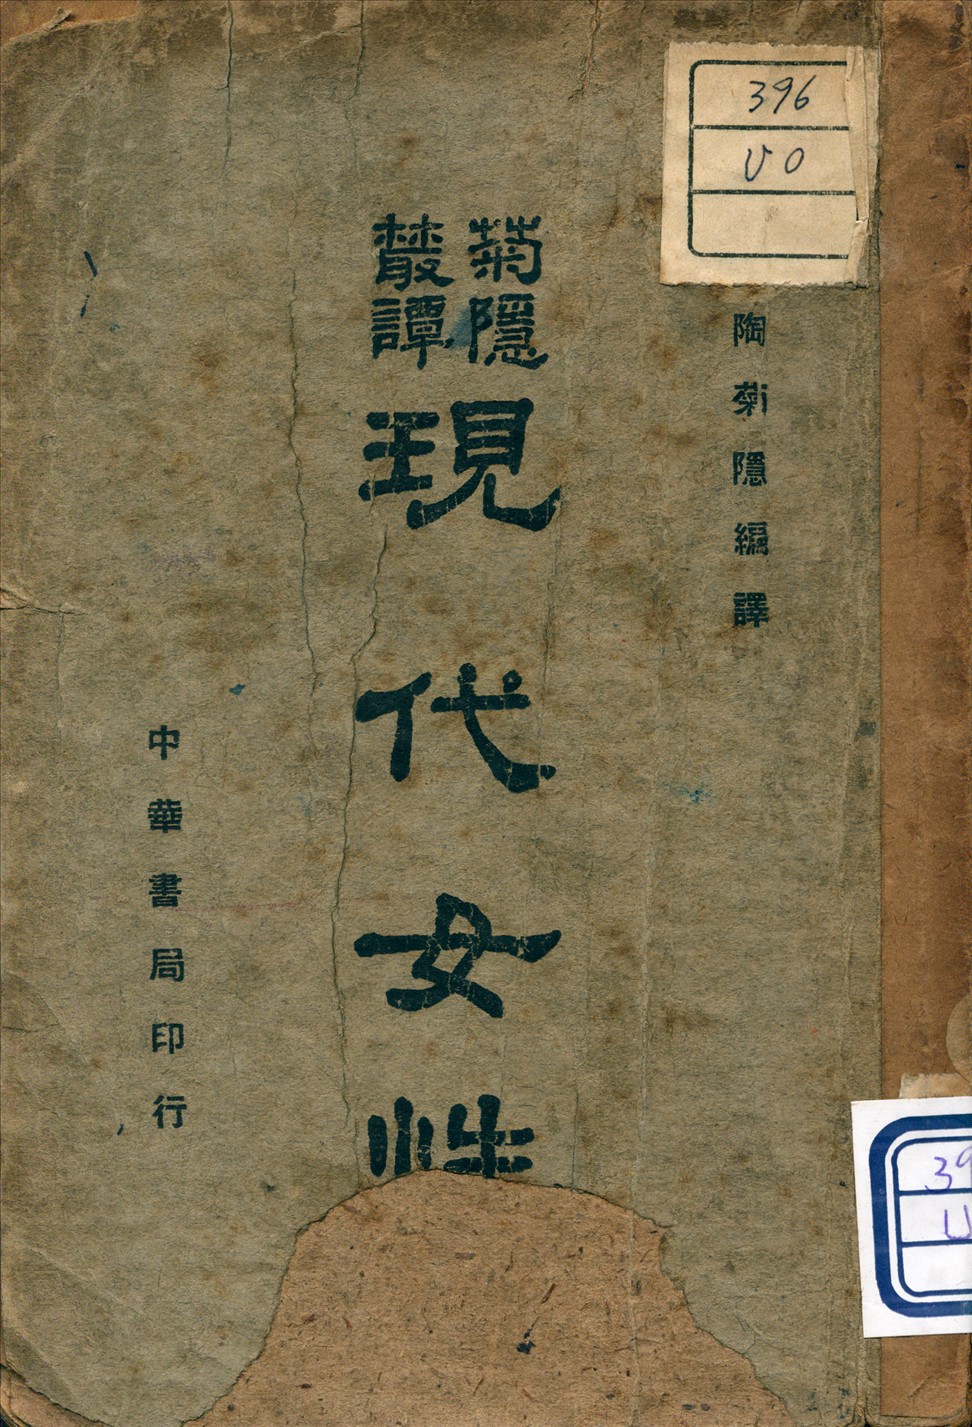 396
U0
陶菊隱編譯
菊隱
叢譚
現代女性
中華書局印行
39
U